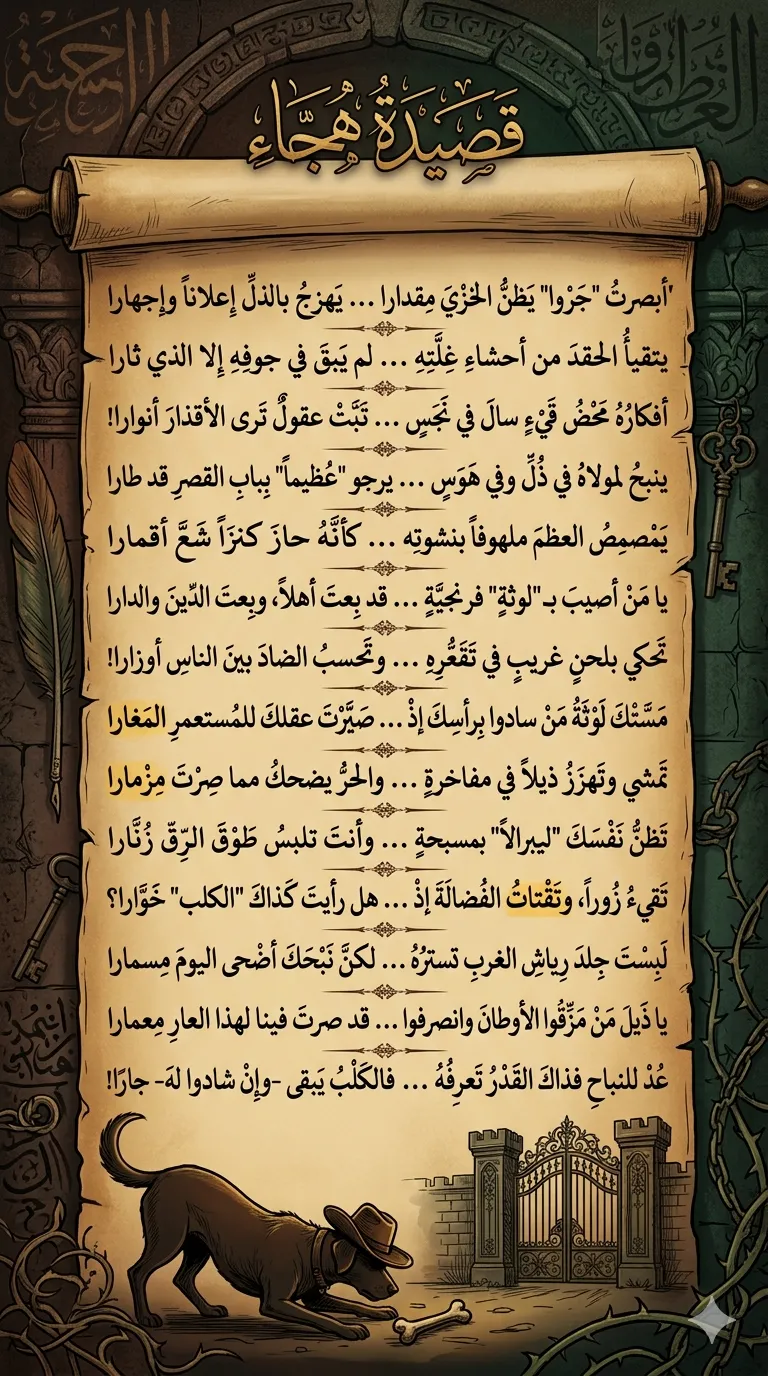 قَصَيَدَةُ هُجَّاءِ
'أبصرتُ "جَرْوا" يَظنُّ الخزْيَ مِقدارا ... يَهزجُ بالذلِّ إعلاناً وإجهارا
يتقيأُ الحقدَ من أحشاءِ غِلَّتِهِ ... لم يَبقَ في جوفِهِ إلا الذي ثارا
أفكارُهُ مَحْضُ قَيْءٍ سالَ في نَجَسٍ ... تَبَّتْ عقولٌ تَرى الأقذارَ أنوارا!
ينبحُ لمولاهُ في ذُلٍّ وفي هَوَسٍ ... يرجو "عُظيماً" بِبابِ القصرِ قد طارا
يَمْصمِصُ العظمَ ملهوفاً بنشوتِه ... كأنَّهُ حازَ كنزَاً شَعَّ أقمارا
يا مَنْ أصيبَ بـ"لوثةٍ" فرنجيَّةٍ ... قد بِعتَ أهلاً، وبِعتَ الدِّينَ والدارا
تَحكي بلحنٍ غريبٍ في تَقَعُّرِهِ ... وتَحسبُ الضادَ بينَ الناسِ أوزارا!
مَسَّتْكَ لَوْثَةُ مَنْ سادوا بِرأسِكَ إذْ ... صَيَّرْتَ عقلكَ للمُستعمرِ المَغارا
تَمشي وتَهزَزُ ذيلاً في مفاخرةٍ ... والحرُّ يضحكُ مما صِرْتَ مِزْمارا
تَظنُّ نَفْسَكَ "ليبرالاً" بمسبحةٍ ... وأنتَ تلبسُ طَوْقَ الرِّقّ زُنَّارا
تَقيءُ زُوراً، وتَقْتاتُ الفُضالَةَ إذْ ... هل رأيتَ كَذاكَ "الكلب" خَوَّارا؟
لَبِسْتَ جِلدَ رِياشِ الغربِ تسترُهُ ... لكنَّ نَبْحَكَ أضْحى اليومَ مِسمارا
يا ذَيلَ مَنْ مَزَّقُوا الأوطانَ وانصرفوا ... قد صرتَ فينا لهذا العارِ مِعمارا
عُدْ للنباحِ فذاكَ القَدْرُ تَعرِفُهُ ... فالكَلْبُ يَبقى -وإنْ شادوا لهَ- جارًا!